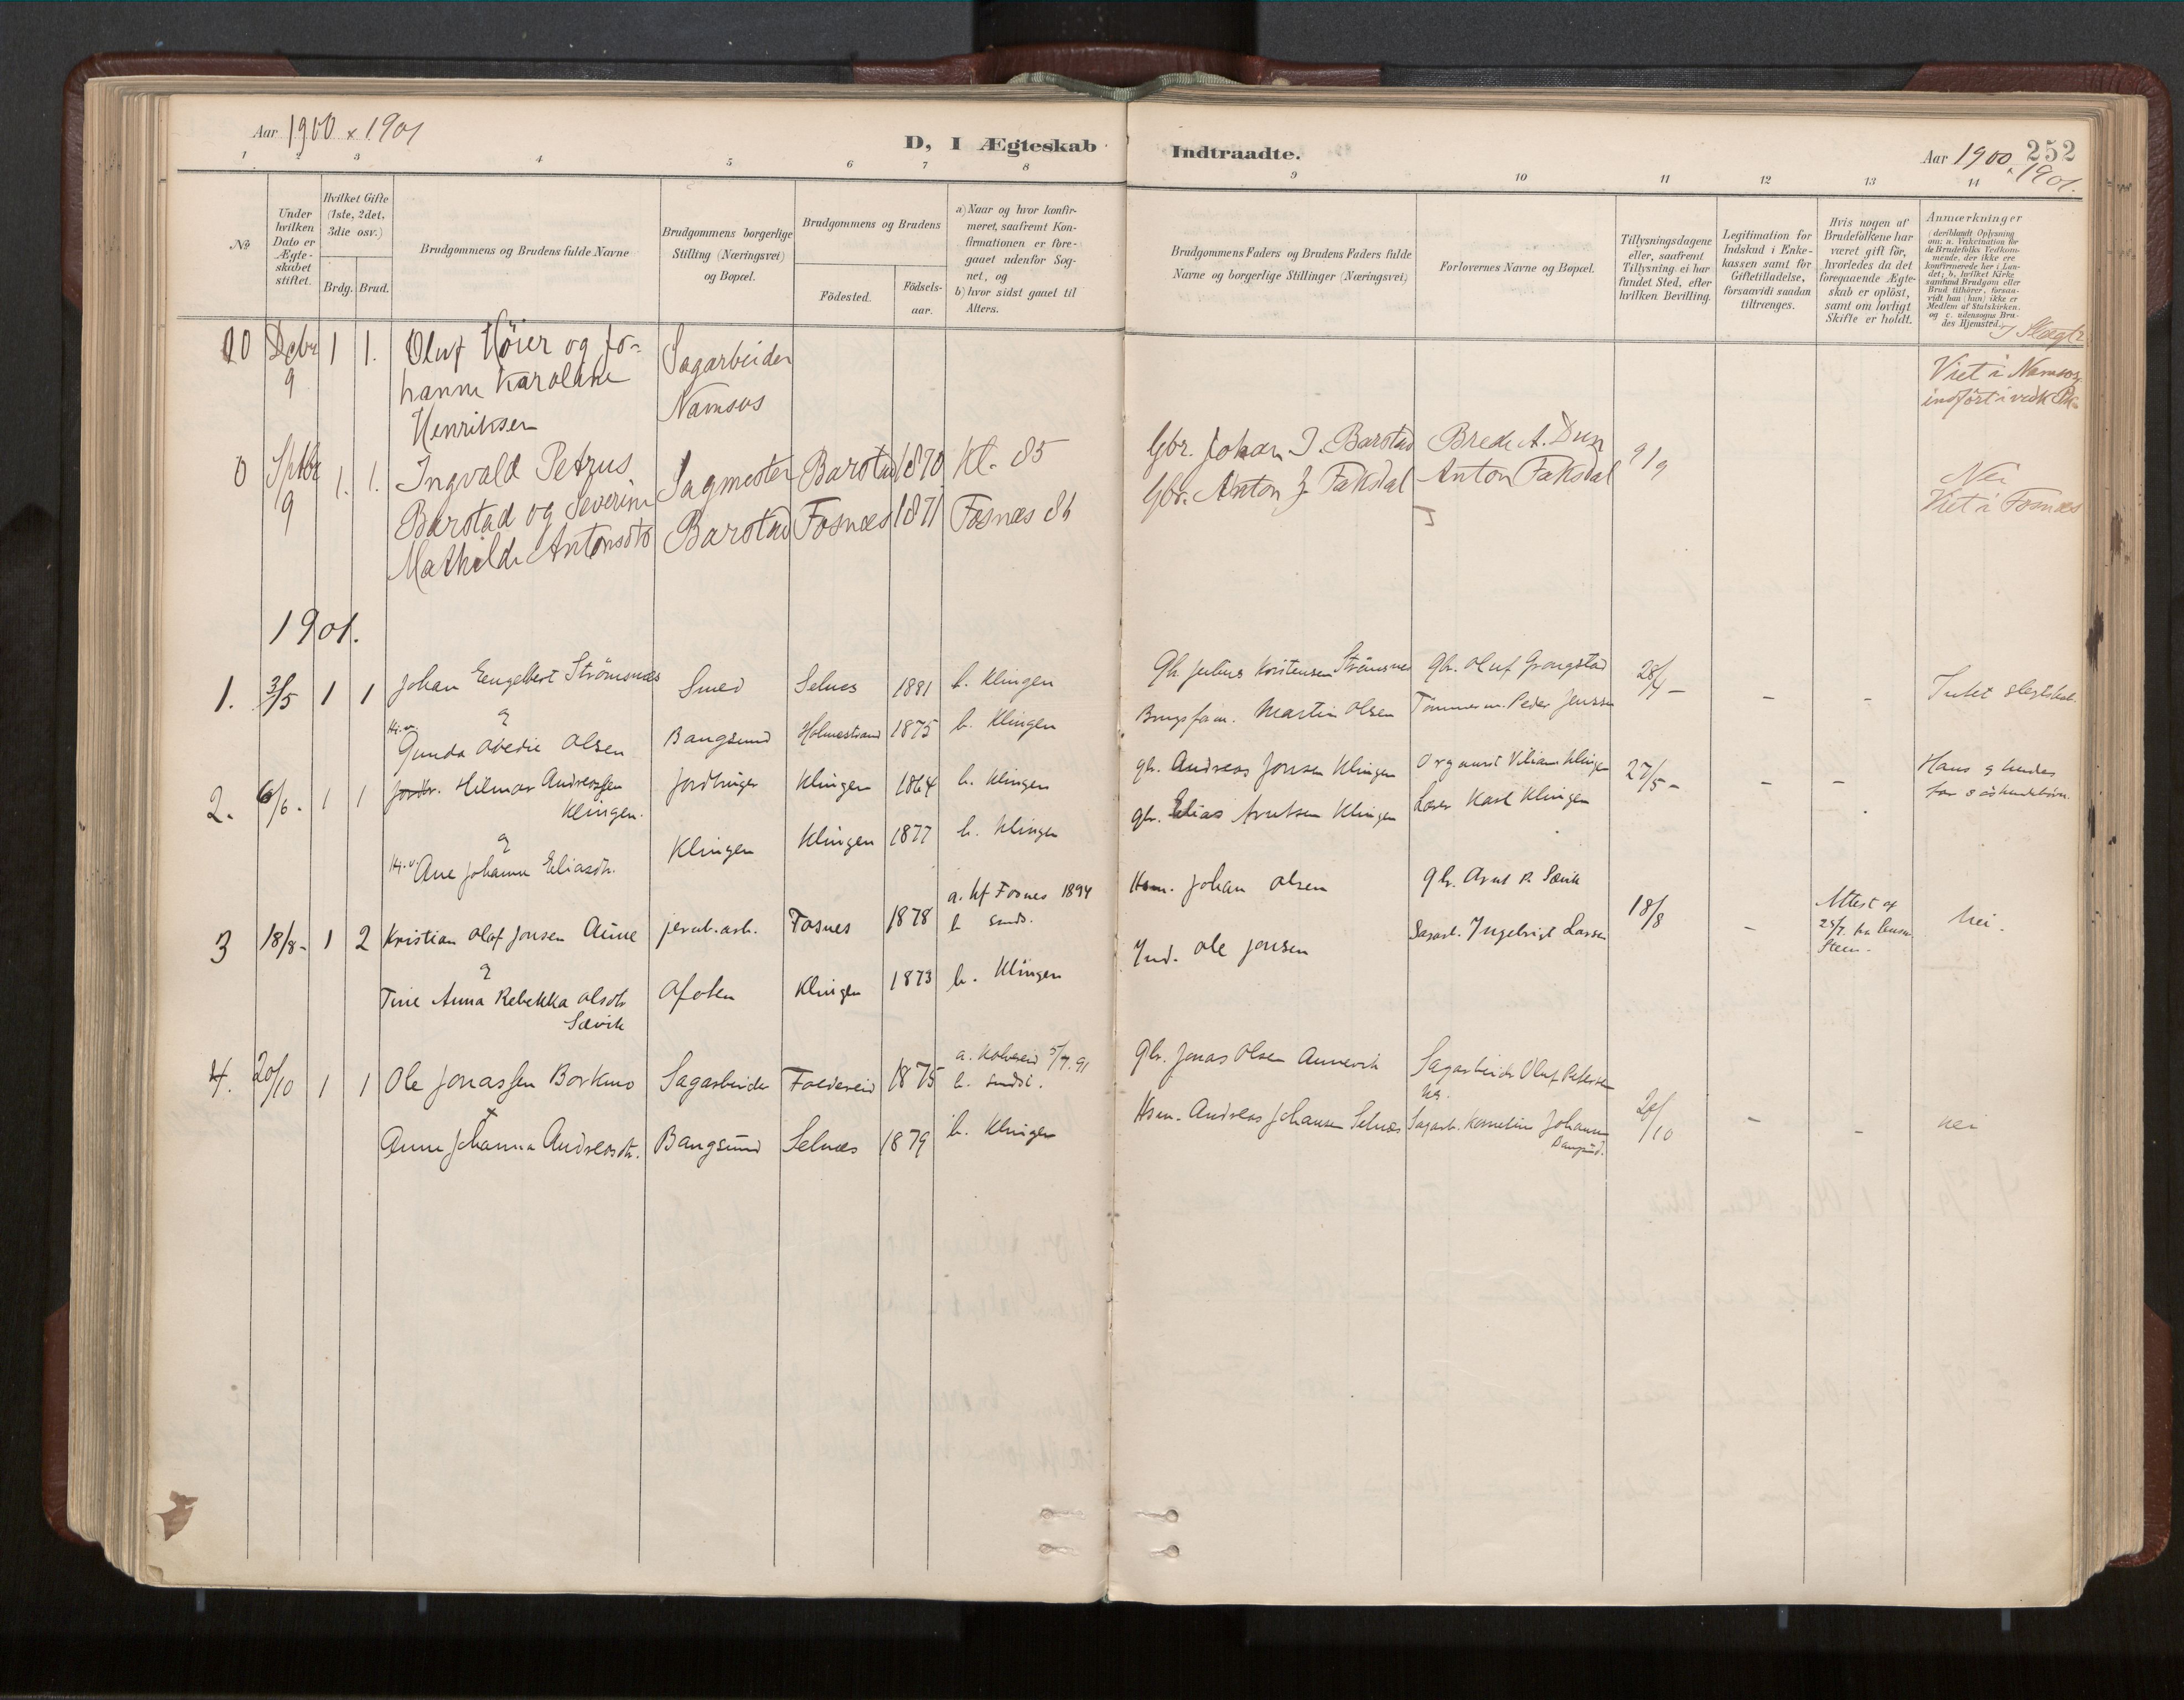 Aar 1900 x 1901
D, I Ægteskab
Indtraadte.
Aar 1900 x 1901.
252
1 2 3 4 5 6 7 8 9 10 11 12 13 14
No
Under hvilken Dato er Ægteskabet stiftet.
Hvilket Gifte (1ste, 2det, 3die osv.)
Brdg. Brud.
Brudgommens og Brudens fulde Navne
Brudgommens borgerlige Stilling (Næringsvei) og Bopæl.
Brudgommens og Brudens
Födested.
Födsels-aar.
a) Naar og hvor konfirmeret, saafremt Konfirmationen er foregaaet udenfor Sognet, og
b) hvor sidst gaaet til Alters.
Brudgommens Faders og Brudens Faders fulde Navne og borgerlige Stillinger (Næringsvei)
Forlovernes Navne og Bopæl.
Tillysningsdagene eller, saafremt Tillysning ei har fundet Sted, efter hvilken Bevilling.
Legitimation for Indskud i Enkekassen samt for Giftetilladelse, forsaavidt saadan tiltrænges.
Hvis nogen af Brudefolkene har været gift för, hvorledes da det foregaaende Ægteskab er oplöst, samt om lovligt Skifte er holdt.
Anmærkninger
(deriblandt Oplysning om: a. Vakcination for de Brudefolks Vedkommende, der ikke ere konfirmerede her i Landet; b. hvilket Kirkesamfund Brudgom eller Brud tilhörer, forsaavidt han (hun) ikke er Medlem af Statskirken, og c. udensogns Brudes Hjemsted.)
10 Dcbr 9 1 1. Oluf Höier og Johanne Karoline Henriksen
Sagarbeider Namsos
Viet i Namsos
indfört i
0 Sptbr 9 1. 1. Ingvald Petrus Barstad og Severine Mathilde Antonsdtr
Sagmester Barstad
Barstad 1870 Kl. 85
Fosnæs 1871 Fosnæs 86
Gbr. Johan I. Barstad
Gbr. Anton Z Faksdal
Brede A. Dun
Anton Faksdal
9/9
Nei
Viet i Fosnæs
1901.
1. 3/5 1 1 Johan Eengelbert Strömsnæs
&
Gunda Ovedie Olsen
Smed Bangsund
Selnes 1881 b. Klingen
Holmestrand 1875 b. Klingen
Gbr. Julius Korstensen Strömsnes
Martin Olsen
Gbr. Oluf Grongstad
Tömmerm. Peder Jenssen
28/4 – – –
Intet
2. 6/6. 1 1 Hilmar Andreassen Klingen.
&
Ane Johanna Eliasdtr.
Jordbruger Klingen
Klingen 1864 b. Klingen
Klingen 1877 b. Klingen
gbr. Andreas Jonsen Klingen
gbr. Elias Arntsen Klingen
Organist Viliam Klingen
Lærer Karl Klingen
27/5 – – –
Hans & hendes
far
3 18/8– 1 2 Kristian Olaf Jonsen Aune
&
Tine Anna Rebekka Olsdtr Sævik
jernb.arb. Ofoten
Fosnes 1878 a. kf Fosnes 1894
b. sinds.
Klingen 1873 b. Klingen
Hsm. Johan Olsen
Ind. Ole Jonsen
gbr. Arnt P. Sævik
Sagarb. Ingebrigt Larsen
18/8 –
Attest af 25/7. fra Steen.
Nei.
4. 20/10 1 1 Ole Jonassen Borkmo
&
Anne Johanna Andreasdtr.
Sagarbeider Bangsund
Foldereid 1875 a. Kolvereid 5/7.91
b. sinds.
Selnæs 1879 b. Klingen
gbr. Jonas Olsen
Hsm. Andreas Johansen Selnæs
Sagarbeider Oluf Petersen
Sagarb. Kornelius Johansen Bangsund.
20/10 – –
nei